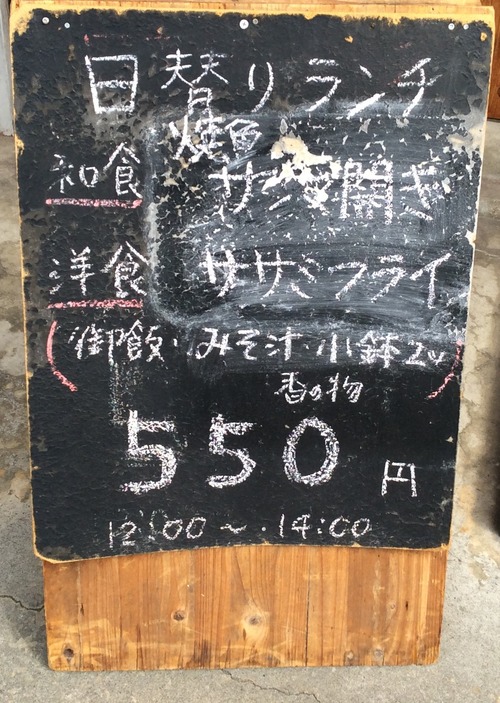 日替りランチ
焼魚
和食 サンマ開き
洋食 ササミフライ
(御飯・みそ汁・小鉢2つ)
香の物
550円
12:00～14:00